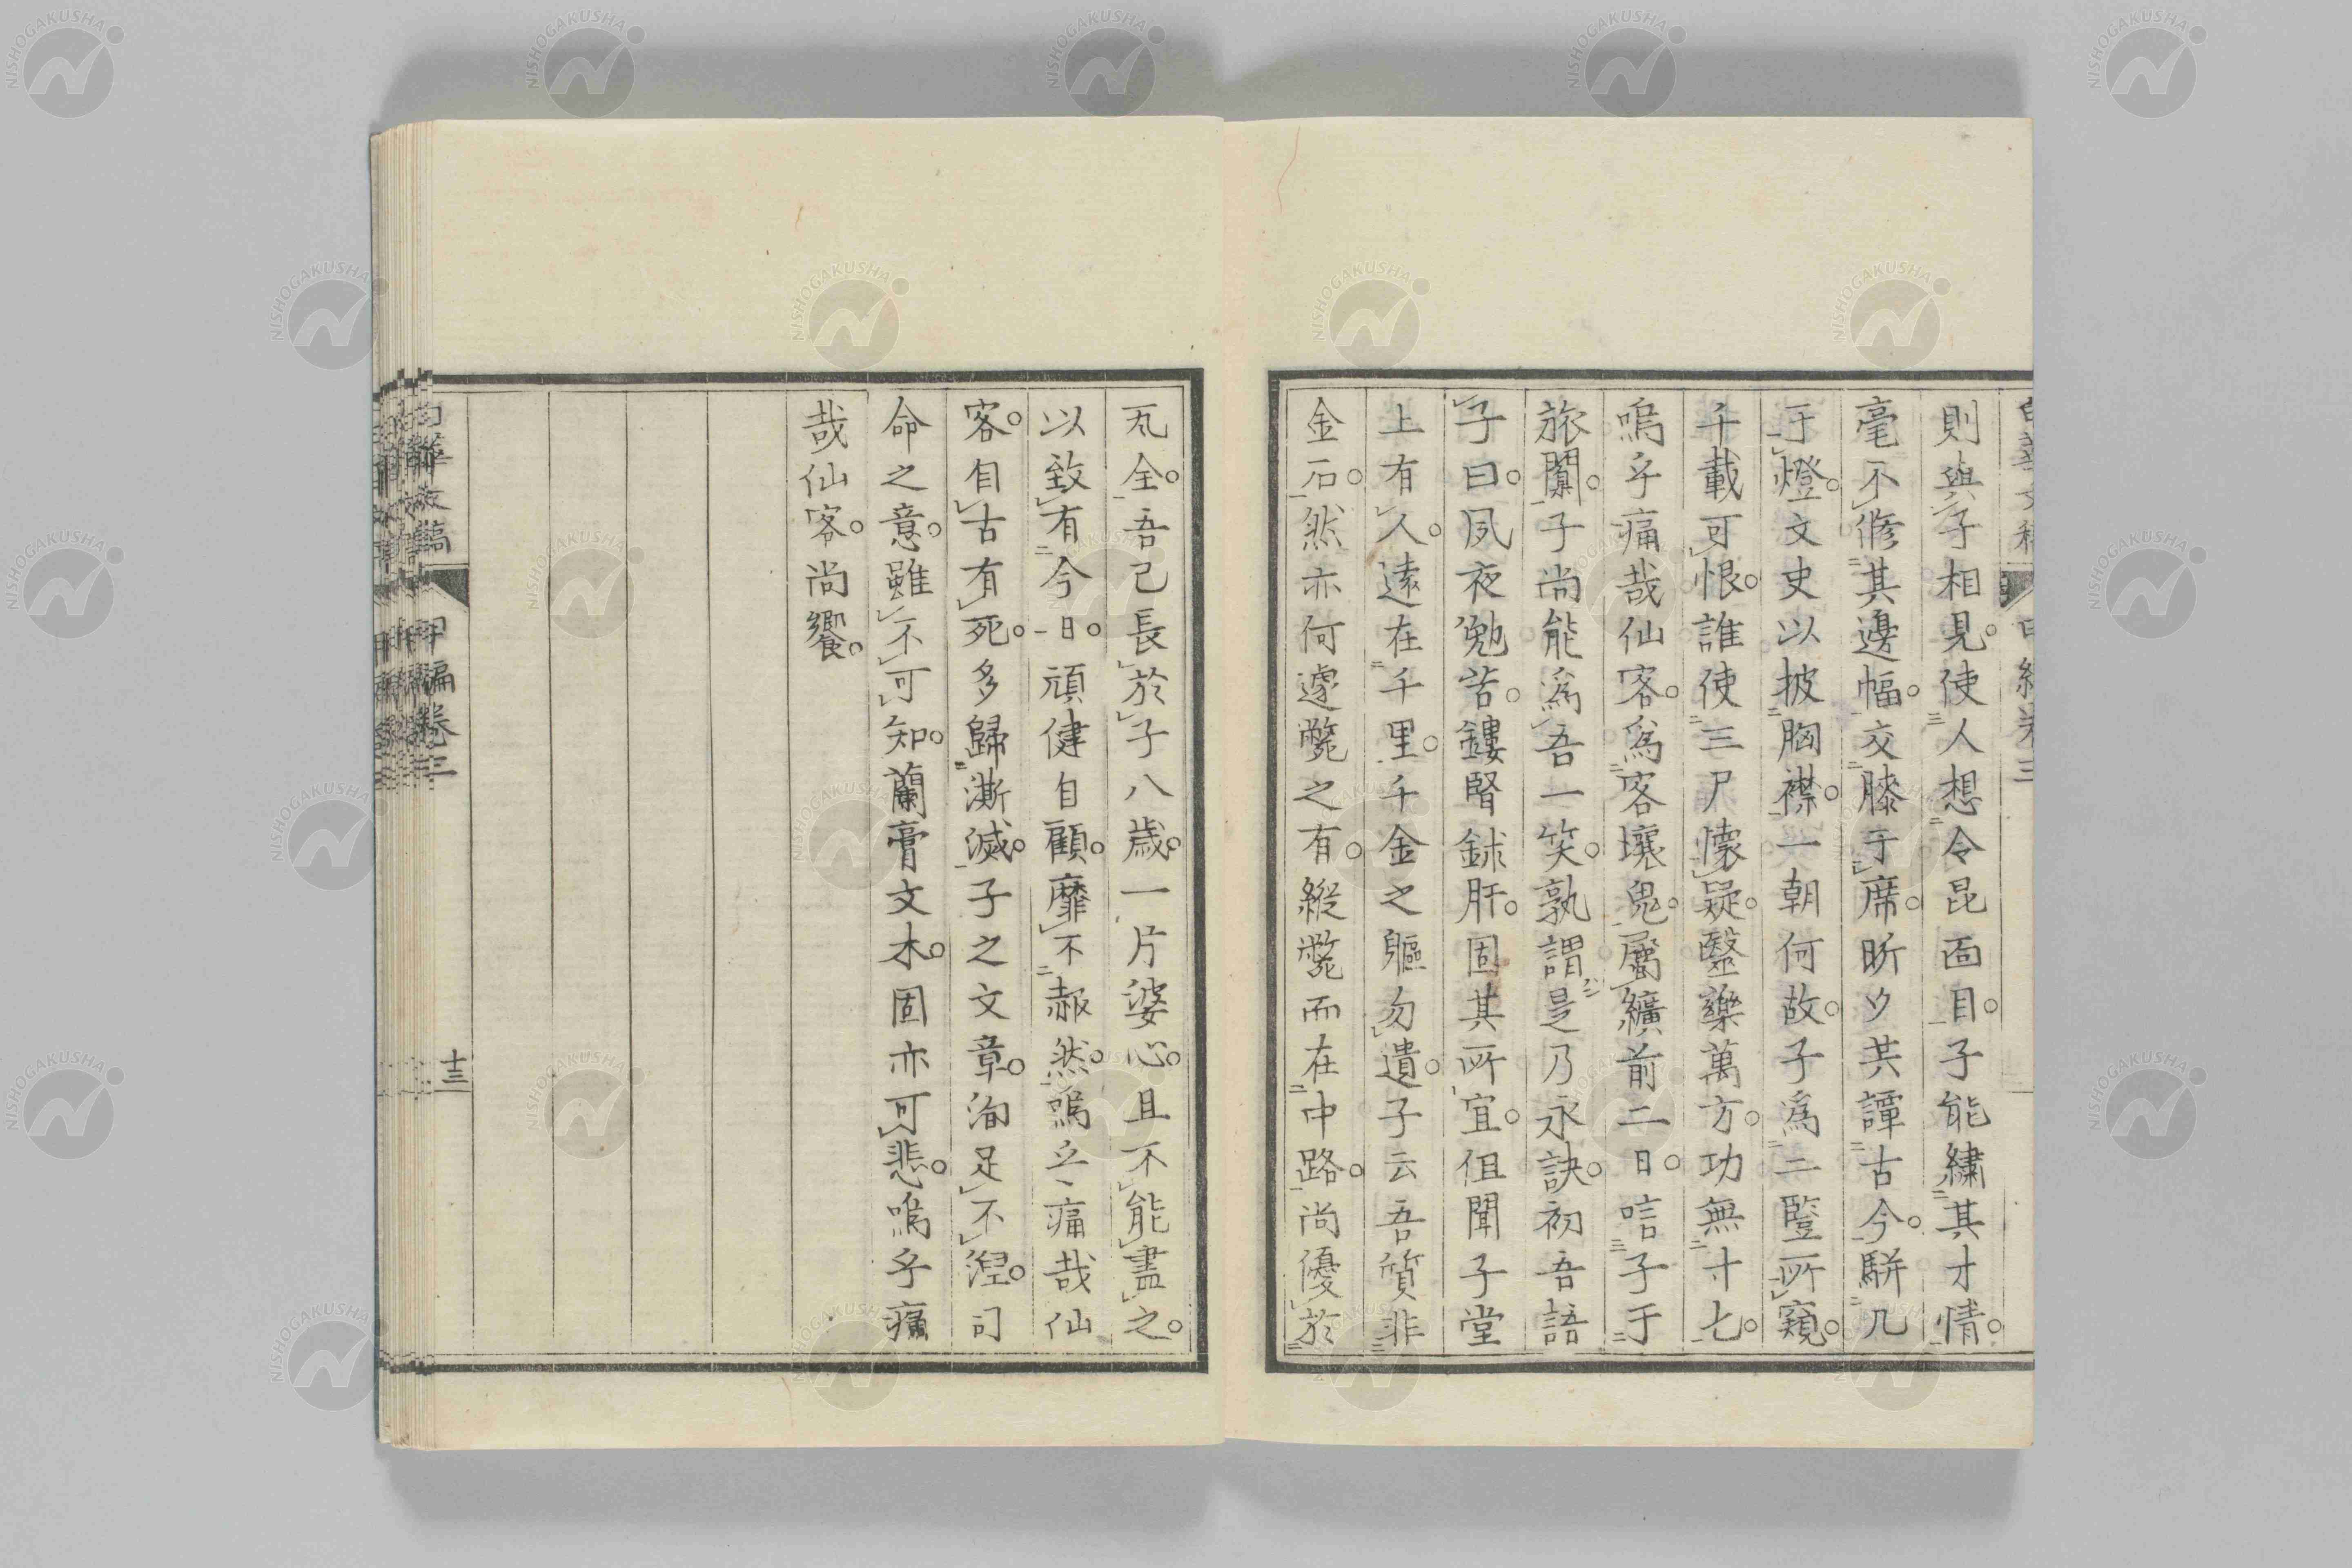 則與子相見。使人想令昆面目。子能繡其才情。
毫不修其邊幅。交膝于席。昕夕共譚古今。駢几
于燈。文史以披胸襟。一朝何故。子為二豎所窺。
千載可恨。誰使三尺懷疑。醫藥萬方。功無寸七。
嗚乎痛哉仙客。為客壤鬼。屬纊前二日。唁子于
旅闃。子尚能為吾一笑。孰謂是乃永訣。初吾語
子曰。夙夜勉苦。鏤腎鉥肝。固其所宜。但聞子堂
上有人。遠在千里。千金之軀勿遺。子云吾質非
金石。然亦何遽斃之有。縱斃而在中路。尚優於
瓦全。吾已長於子八歲。一片婆心。且不能盡之。
以致有今日。頑健自顧。靡不赧然。嗚乎、痛哉仙
客。自古有死。多歸澌滅。子之文章。洵足不涅。司
命之意。雖不可知。蘭膏文木。固亦可悲。嗚乎痛
哉仙客。尚饗。
十三
NISHOGAKUSHA